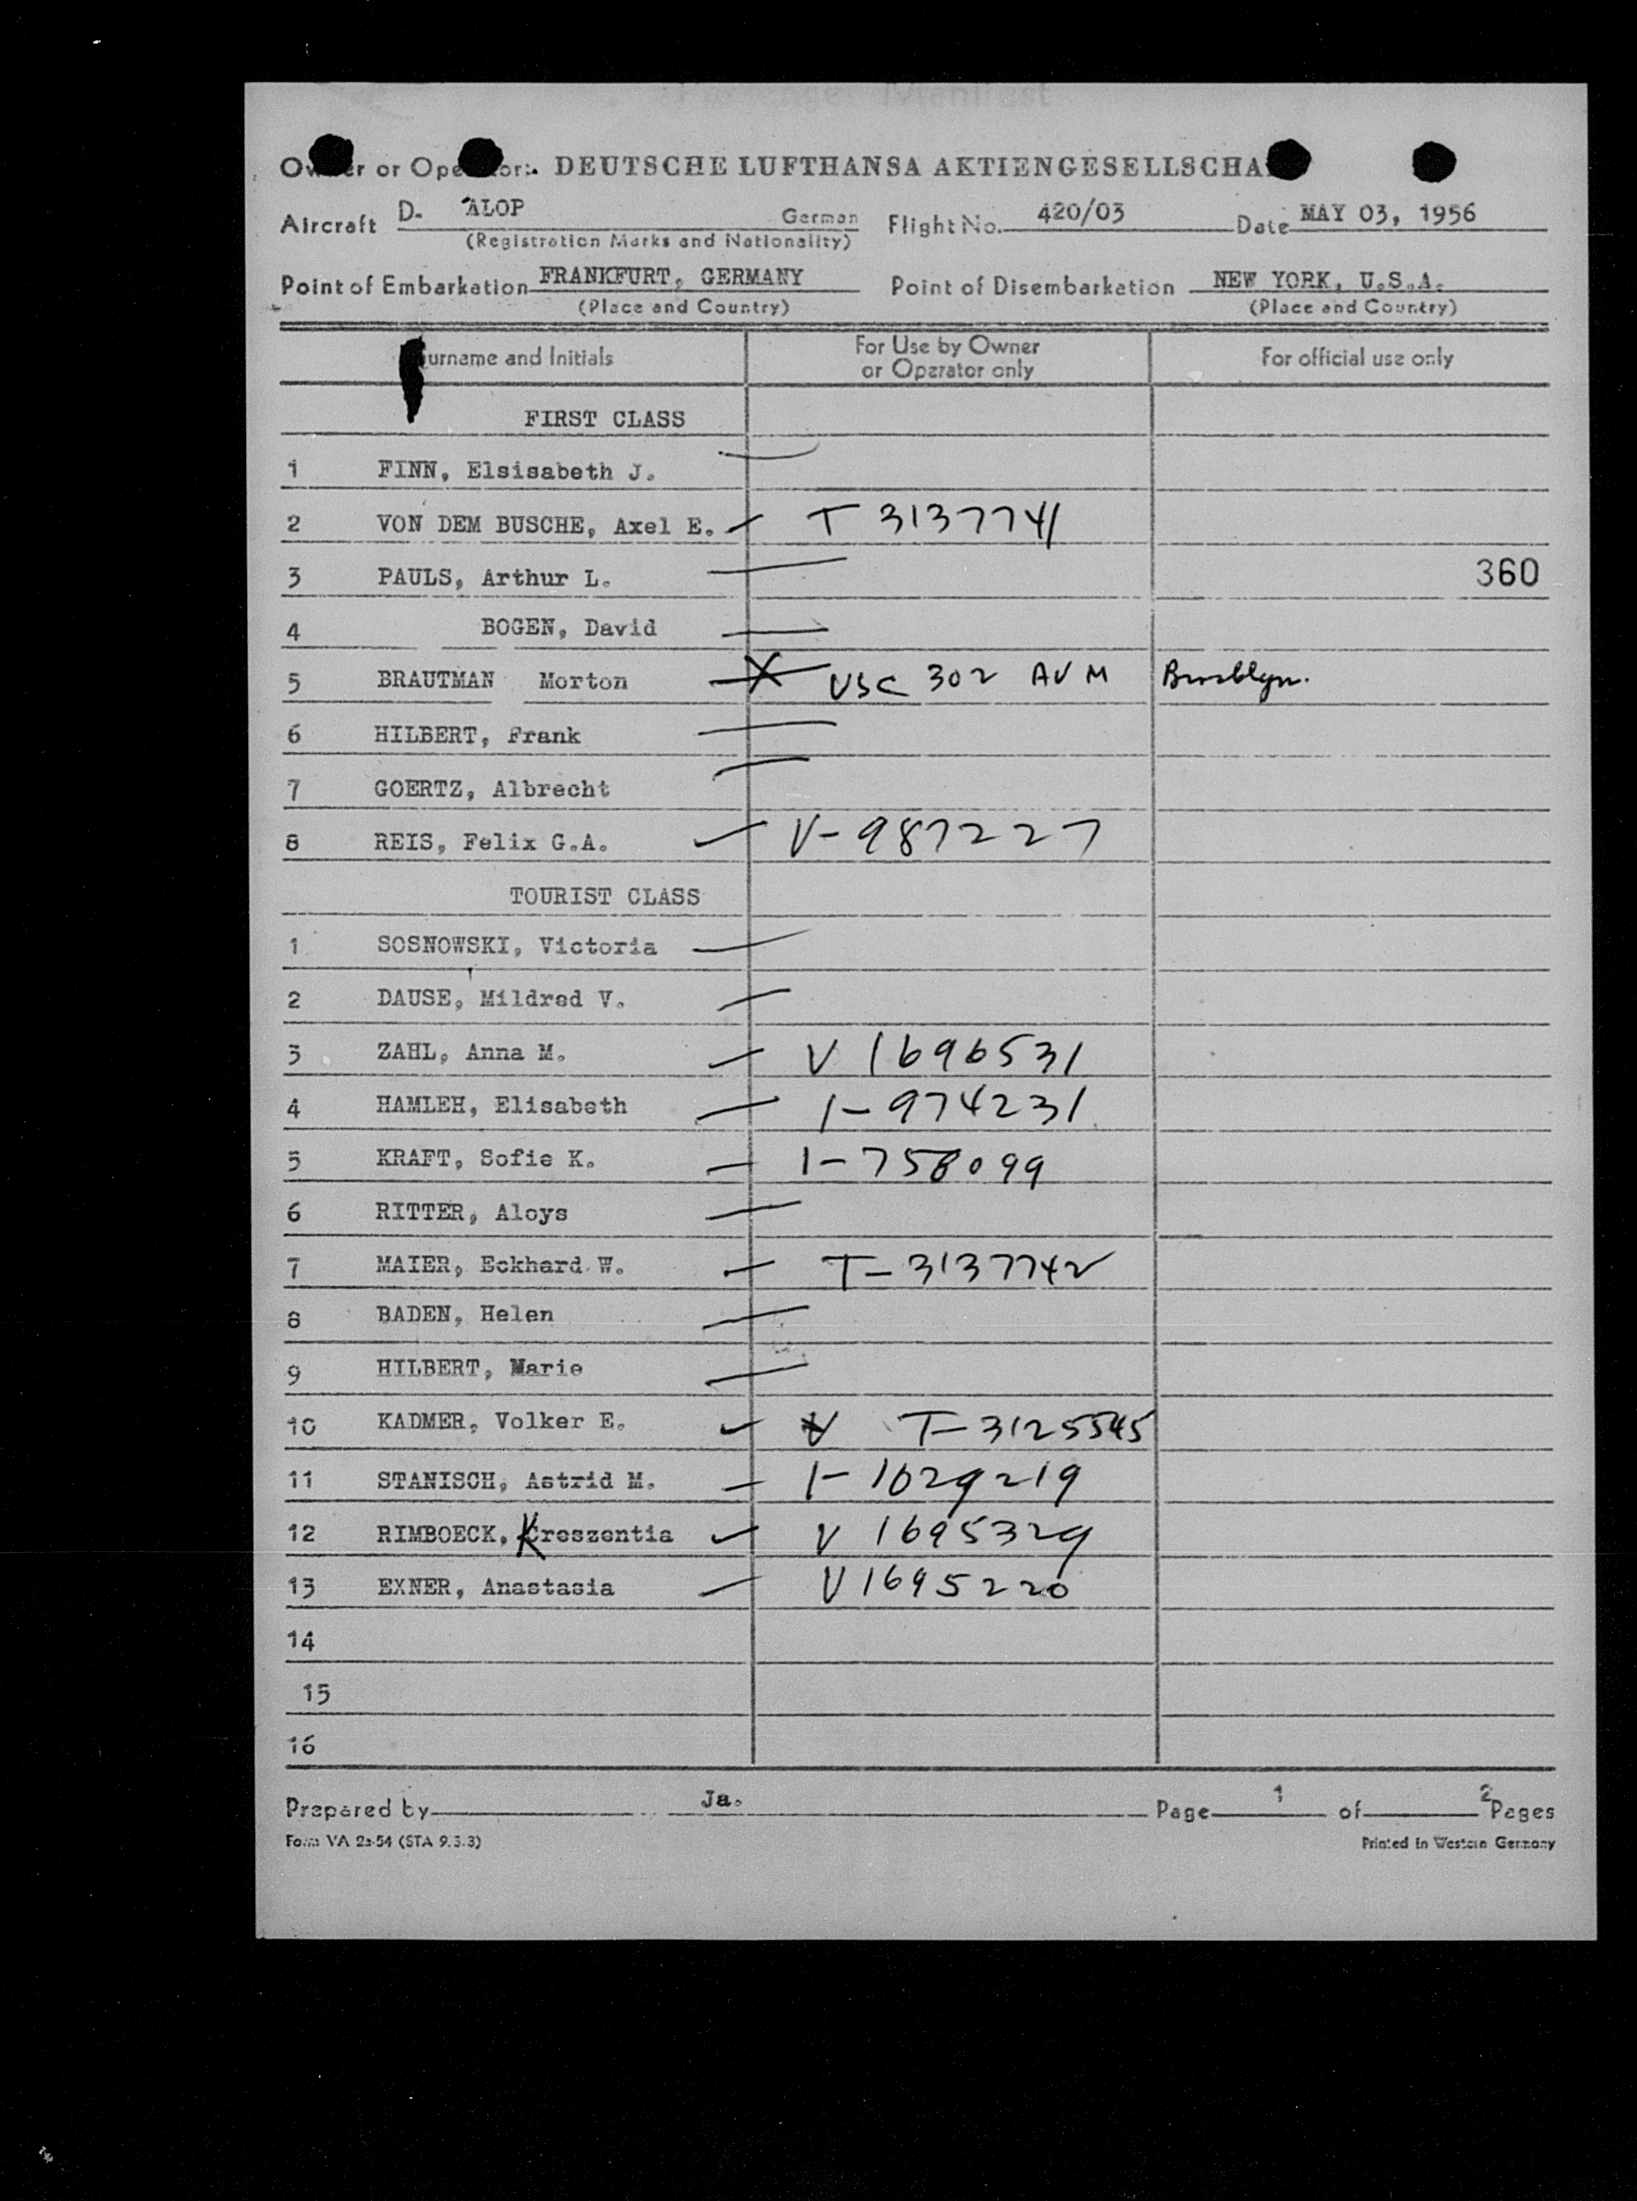 Passenger Manifest
Owner or Operator: DEUTSCHE LUFTHANSA AKTIENGESELLSCHA
Aircraft D. ALOP German Flight No. 420/03 Date MAY 03, 1956
(Registration Marks and Nationality)
Point of Embarkation FRANKFURT, GERMANY Point of Disembarkation NEW YORK, U.S.A.
(Place and Country) (Place and Country)
Surname and Initials For Use by Owner or Operator only For official use only
FIRST CLASS
1 FINN, Elsisabeth J.
2 VON DEM BUSCHE, Axel E. T 3137741
3 PAULS, Arthur L. 360
4 BOGEN, David
5 BRAUTMAN Morton X USC 302 AVM Brooklyn.
6 HILBERT, Frank
7 GOERTZ, Albrecht
8 REIS, Felix G.A. V-987227
TOURIST CLASS
1 SOSNOWSKI, Victoria
2 DAUSE, Mildred V.
3 ZAHL, Anna M. V 1696531
4 HAMLEH, Elisabeth 1-974231
5 KRAFT, Sofie K. 1-758099
6 RITTER, Aloys
7 MAIER, Eckhard W. T-3137742
8 BADEN, Helen
9 HILBERT, Marie
10 KADMER, Volker E. V T-3125545
11 STANISCH, Astrid M. 1-1029219
12 RIMBOECK, Kreszentia V 1695329
13 EXNER, Anastasia V1695220
14
15
16
Prepared by Ja. Page 1 of 2 Pages
Form VA 2a-54 (STA 9.3.3) Printed in Western Germany